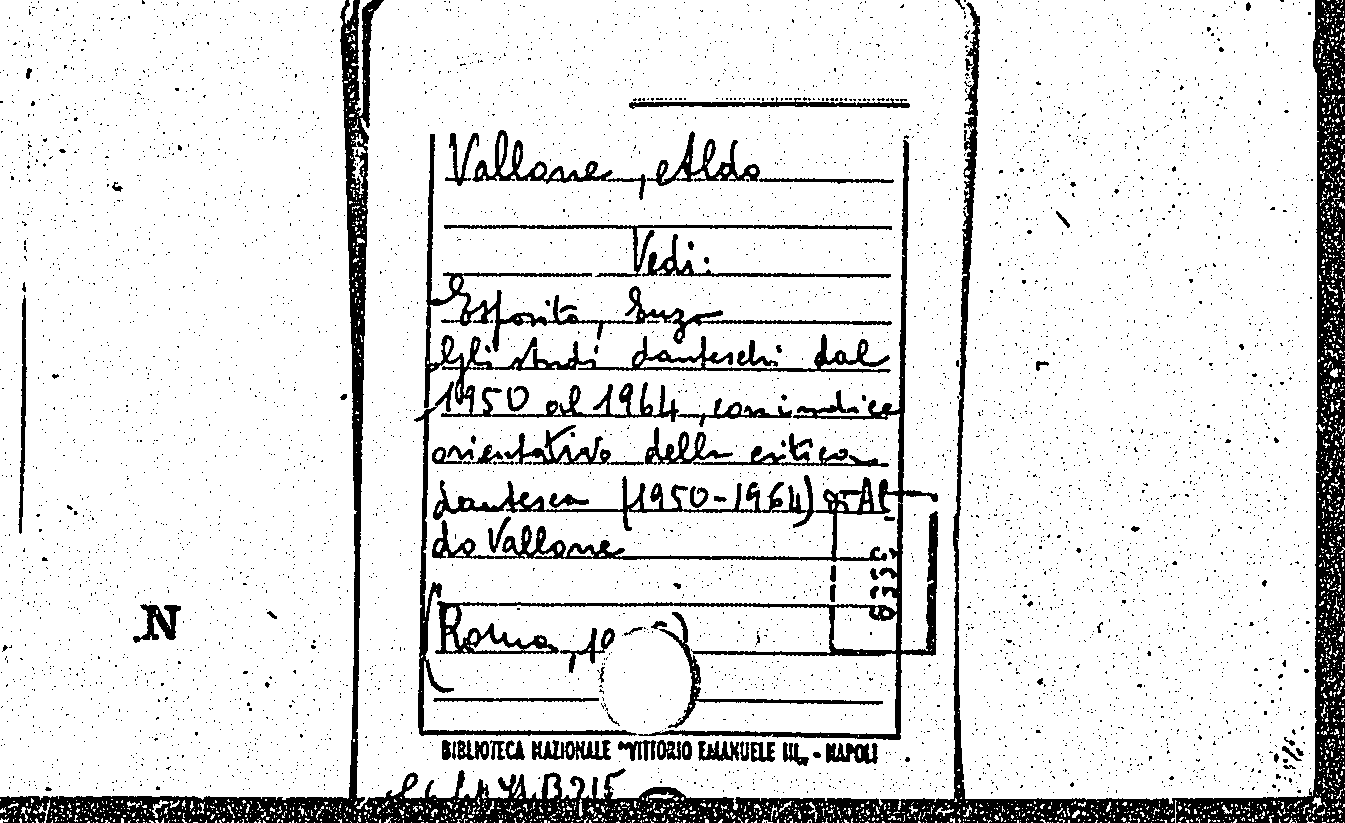 Vallone, Aldo
Vedi:
Esposito, Enzo
Gli studi danteschi dal
1950 al 1964, con indice
orientativo della critica
dantesca (1950-1964) di Al-
do Vallone
(Roma, 19
BIBLIOTECA NAZIONALE "VITTORIO EMANUELE III" - NAPOLI
.N